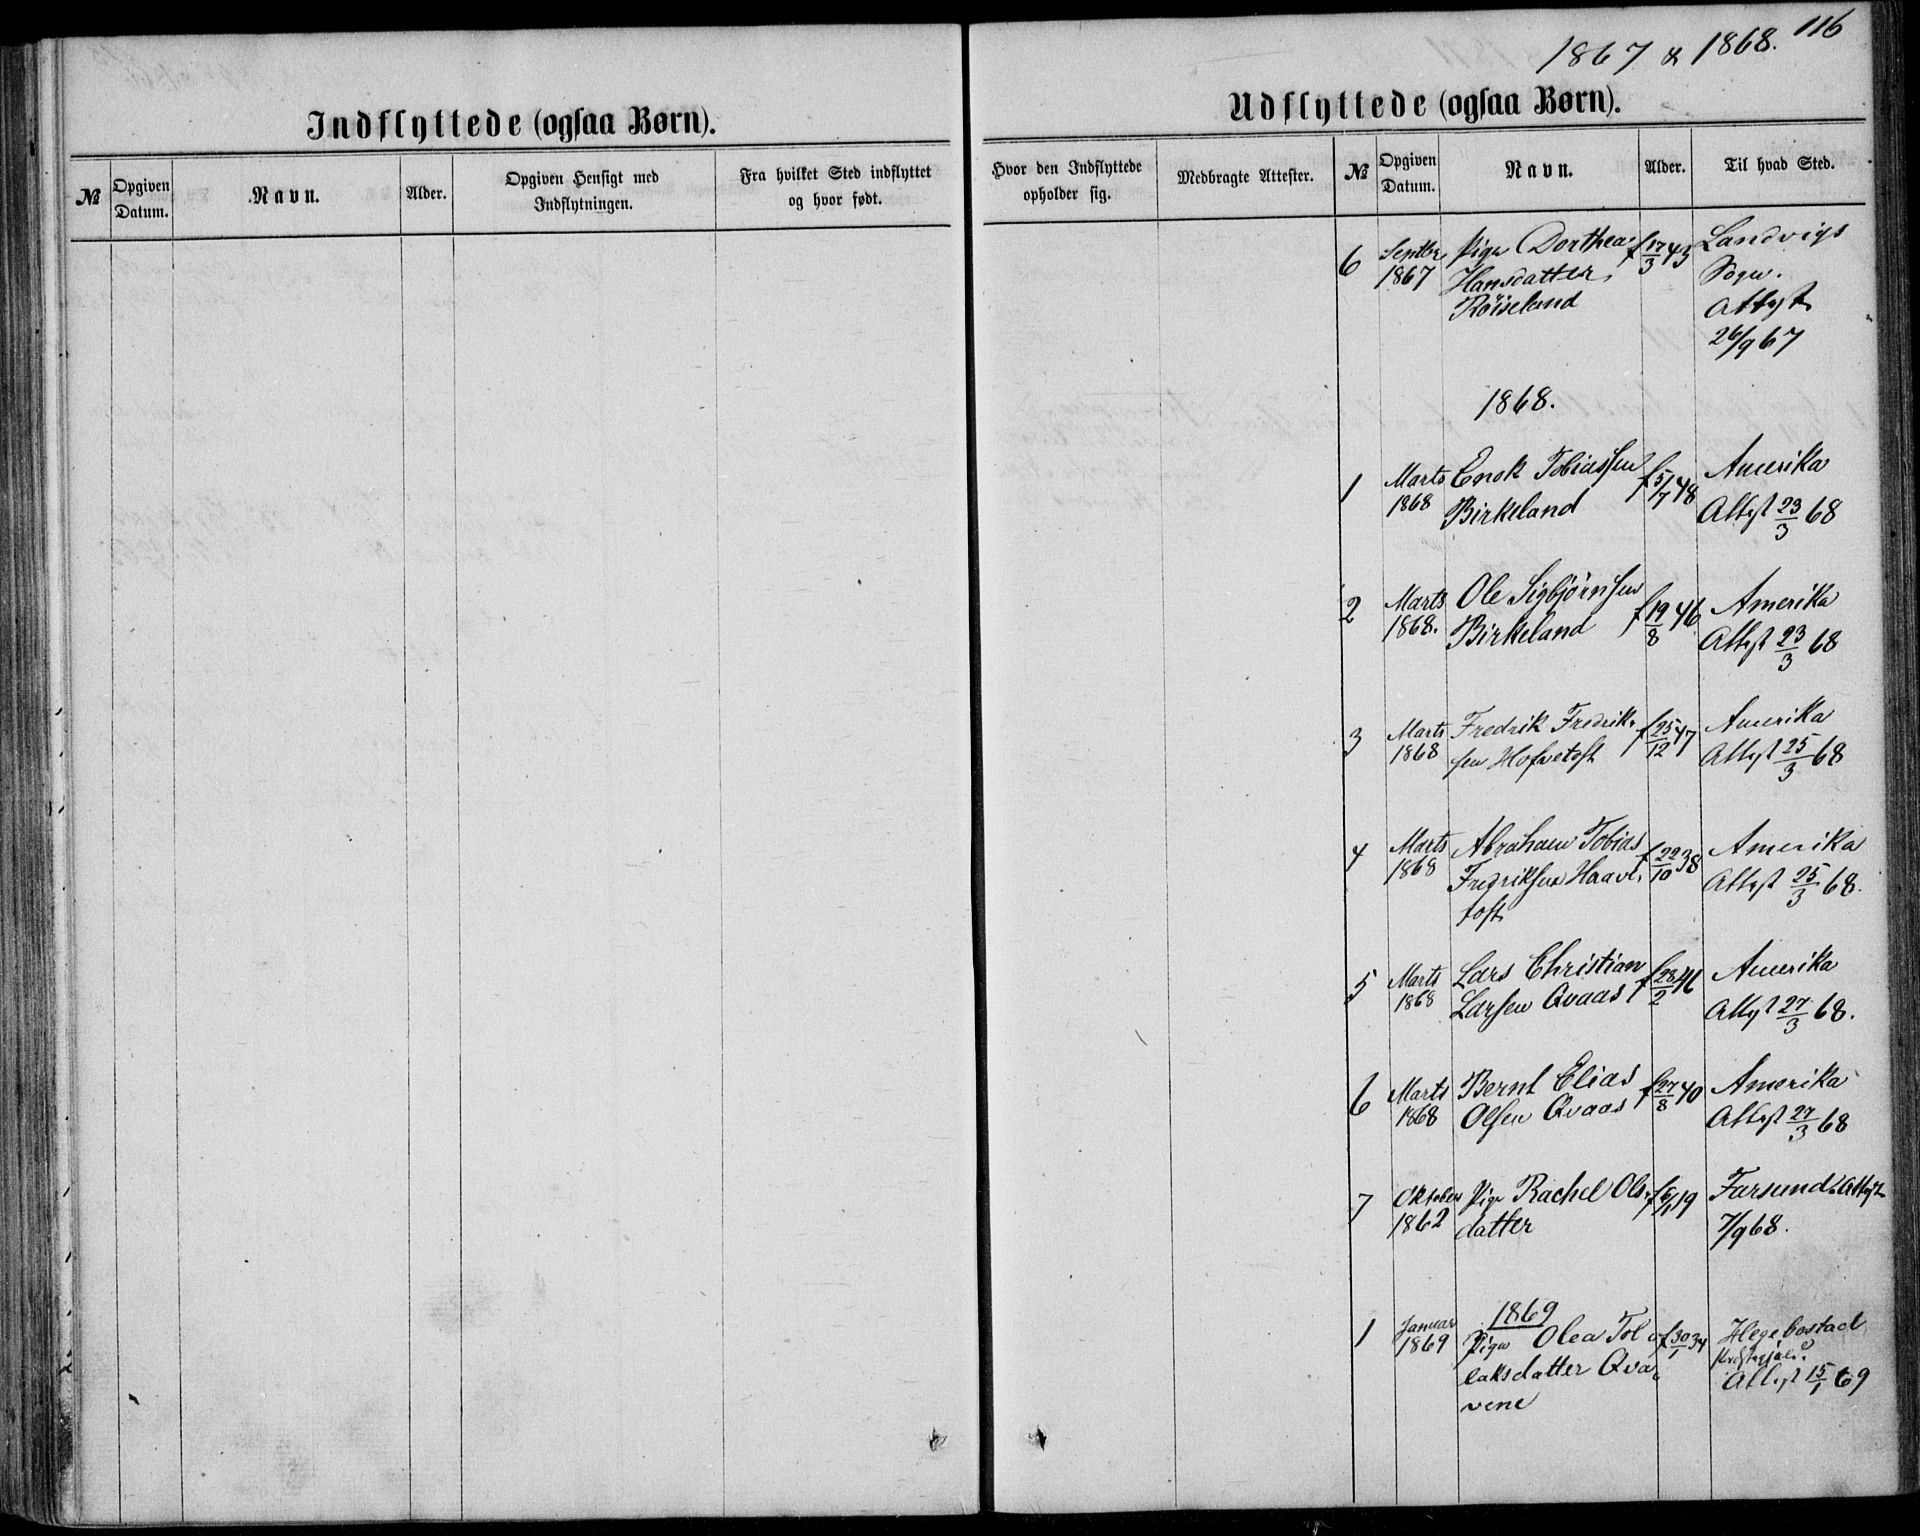 116
1867 & 1868.
Indflyttede (ogsaa Børn).
№
Opgiven
Datum.
Navn.
Alder.
Opgiven Hensigt med
Indflytningen.
Fra hvilket Sted indflyttet
og hvor født.
Udflyttede (ogsaa Børn).
Hvor den Indflyttede
opholder sig.
Medbragte Attester.
№
Opgiven
Datum.
Navn.
Alder.
Til hvad Sted.
6
Septbr
1867
Pige Dorthea
Hansdatter
Röiseland
f 17/3 43
Landvigs
Sogn.
Attest
26/9 67
1868.
1
Marts
1868
Enok Tobiassen
Birkeland
f 5/7 48
Amerika
Attest 23/3 68
2
Marts
1868.
Ole Sigbjørnsen
Birkeland
f 19/8 46
Amerika
Attest 23/3 68
3
Marts
1868
Fredrik Fredrik-
sen Hofvetoft
f 25/12 47
Amerika
Attest 25/3 68
4
Marts
1868
Abraham Tobias
Fredriksen Haave-
toft
f 22/10 38
Amerika
Attest 25/3 68.
5
Marts
1868
Lars Christian
Larsen Qvaas
f 28/2 46
Amerika
Attest 27/3 68.
6
Marts
1868
Bernt Elias
Olsen Qvaas
f 27/8 40
Amerika
Attest 27/3 68
7
Oktober
1862
Pige Rachel Ols-
datter
f 6/1 19
Farsund. Attest
7/9 68.
1869
1
Januar
1869
Pige Olea Tol-
laksdatter Qva-
vene
f 30/1 34
Hegebostad
Præstegjæld.
Attest 15/1 69